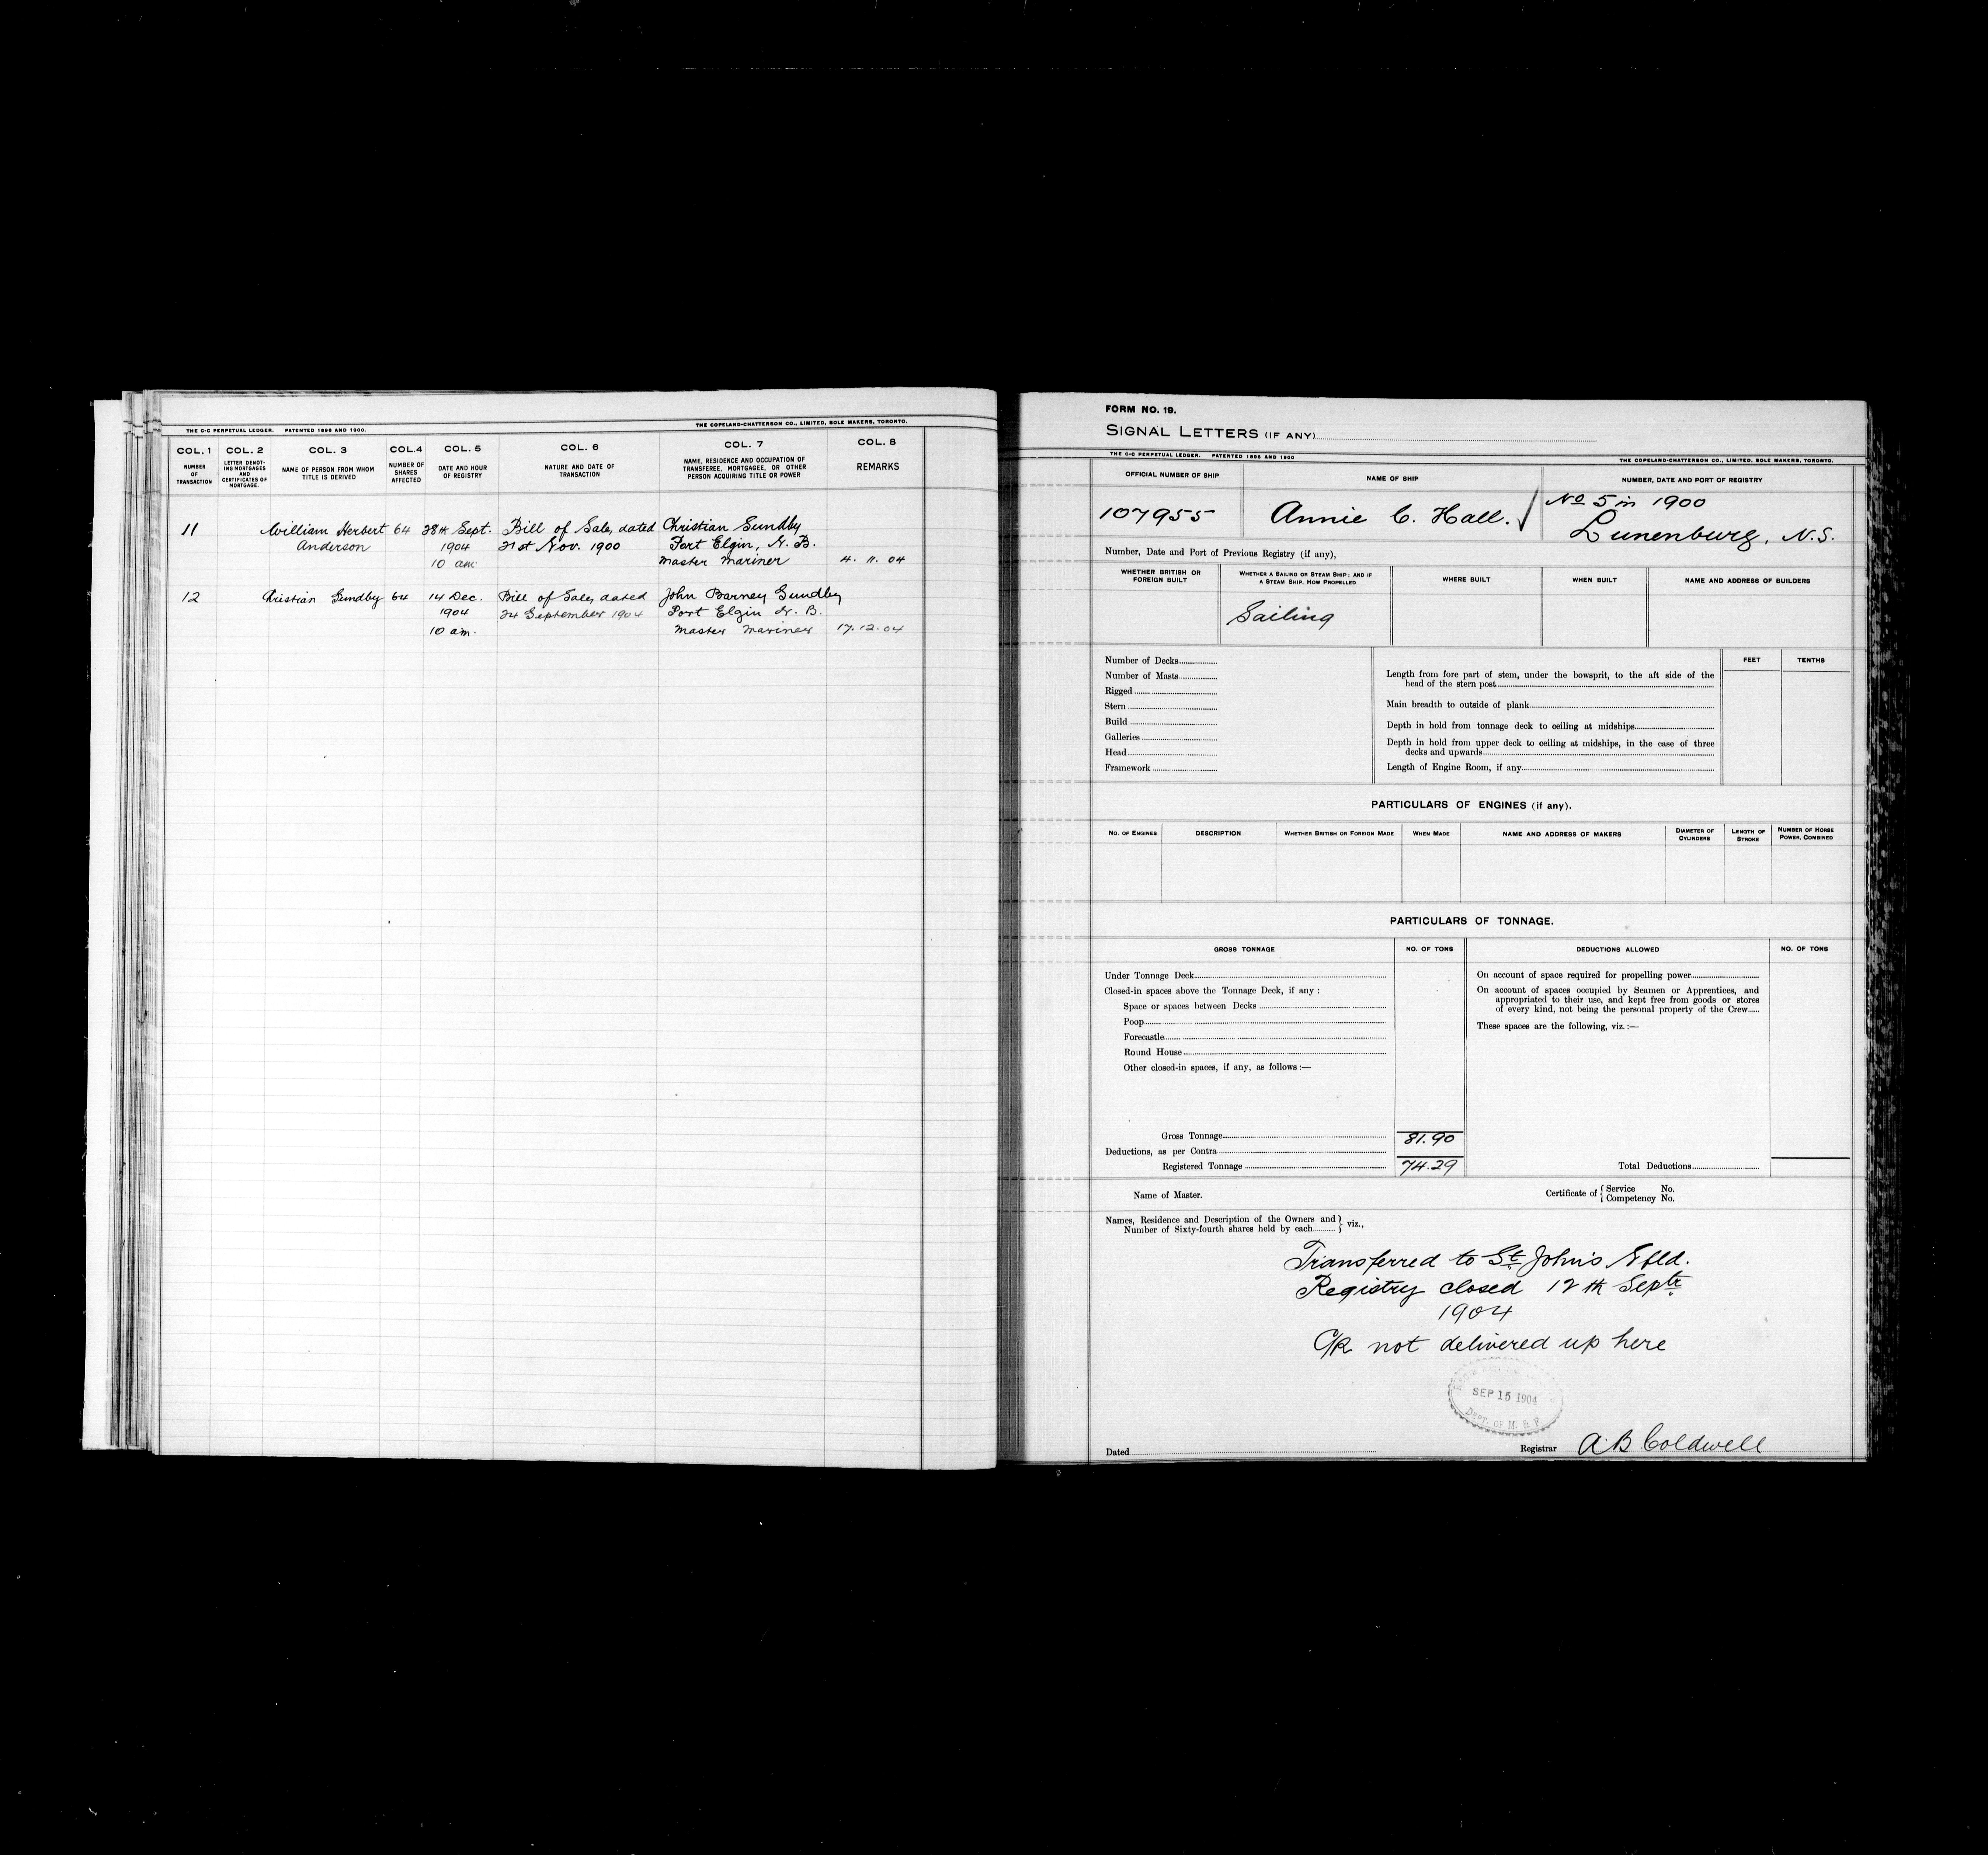 THE C-C PERPETUAL LEDGER. PATENTED 1896 AND 1900. THE COPELAND-CHATTERSON CO., LIMITED, SOLE MAKERS, TORONTO.
COL. 1 COL. 2 COL. 3 COL. 4 COL. 5 COL. 6 COL. 7 COL. 8
NUMBER OF TRANSACTION
LETTER DENOTING MORTGAGES AND CERTIFICATES OF MORTGAGE.
NAME OF PERSON FROM WHOM TITLE IS DERIVED
NUMBER OF SHARES AFFECTED
DATE AND HOUR OF REGISTRY
NATURE AND DATE OF TRANSACTION
NAME, RESIDENCE AND OCCUPATION OF TRANSFEREE, MORTGAGEE, OR OTHER PERSON ACQUIRING TITLE OR POWER
REMARKS
11 William Herbert 64 28th Sept. Bill of Sale, dated Christian Gundby
Anderson 1904 21st Nov. 1900 Port Elgin, N. B.
10 am. Master Mariner 4. 11. 04
12 Christian Gundby 64 14 Dec. Bill of Sale, dated John Barney Gundby
1904 24 September 1904 Port Elgin N. B.
10 am. Master Mariner 17. 12. 04
FORM NO. 19.
SIGNAL LETTERS (IF ANY)
THE C-C PERPETUAL LEDGER. PATENTED 1896 AND 1900 THE COPELAND-CHATTERSON CO., LIMITED, SOLE MAKERS, TORONTO.
OFFICIAL NUMBER OF SHIP NAME OF SHIP NUMBER, DATE AND PORT OF REGISTRY
107955 Annie C. Hall. No 5 in 1900
Lunenburg, N.S.
Number, Date and Port of Previous Registry (if any),
WHETHER BRITISH OR FOREIGN BUILT
WHETHER A SAILING OR STEAM SHIP; AND IF A STEAM SHIP, HOW PROPELLED
WHERE BUILT
WHEN BUILT
NAME AND ADDRESS OF BUILDERS
Sailing
Number of Decks
Number of Masts
Rigged
Stern
Build
Galleries
Head
Framework
FEET TENTHS
Length from fore part of stem, under the bowsprit, to the aft side of the
head of the stern post
Main breadth to outside of plank
Depth in hold from tonnage deck to ceiling at midships
Depth in hold from upper deck to ceiling at midships, in the case of three
decks and upwards
Length of Engine Room, if any
PARTICULARS OF ENGINES (if any).
NO. OF ENGINES
DESCRIPTION
WHETHER BRITISH OR FOREIGN MADE
WHEN MADE
NAME AND ADDRESS OF MAKERS
DIAMETER OF CYLINDERS
LENGTH OF STROKE
NUMBER OF HORSE POWER, COMBINED
PARTICULARS OF TONNAGE.
GROSS TONNAGE NO. OF TONS DEDUCTIONS ALLOWED NO. OF TONS
Under Tonnage Deck
Closed-in spaces above the Tonnage Deck, if any :
Space or spaces between Decks
Poop
Forecastle
Round House
Other closed-in spaces, if any, as follows :—
On account of space required for propelling power
On account of spaces occupied by Seamen or Apprentices, and
appropriated to their use, and kept free from goods or stores
of every kind, not being the personal property of the Crew
These spaces are the following, viz. :—
Gross Tonnage 81.90
Deductions, as per Contra
Registered Tonnage 74.29
Total Deductions
Name of Master.
Certificate of { Service No.
Competency No.
Names, Residence and Description of the Owners and
Number of Sixty-fourth shares held by each } viz.,
Transferred to St. John's Nfld.
Registry closed 12th Septr
1904
C/R not delivered up here
SEP 15 1904
DEPT. OF M. & F.
Dated
Registrar A B Coldwell